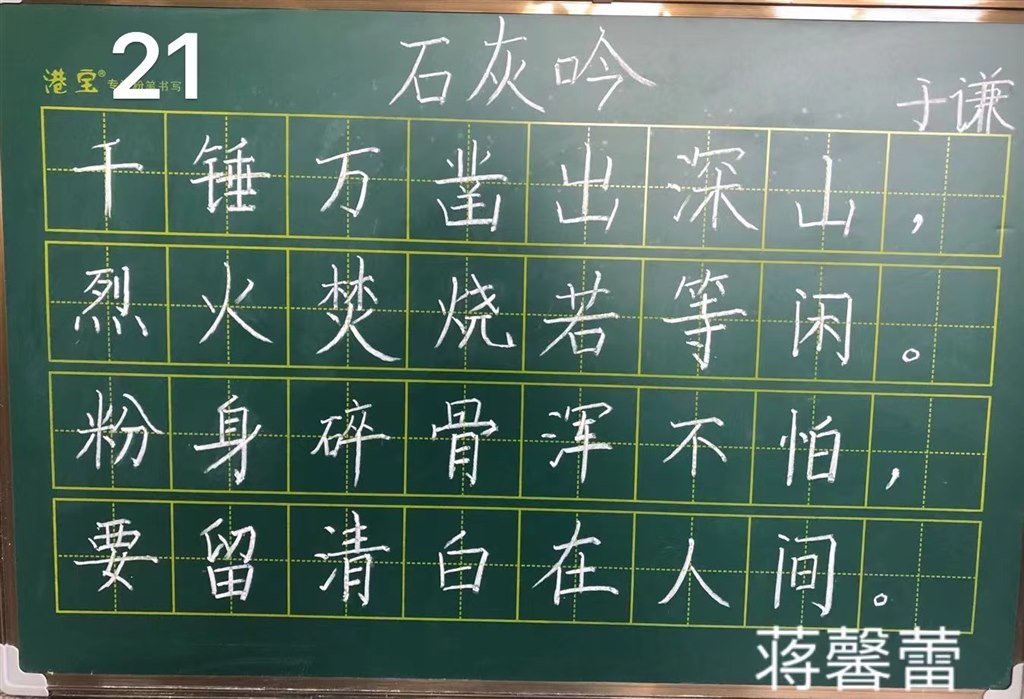 石灰吟
21
港宝®
于谦
千锤万凿出深山，
烈火焚烧若等闲。
粉身碎骨浑不怕，
要留清白在人间。
蒋馨蕾